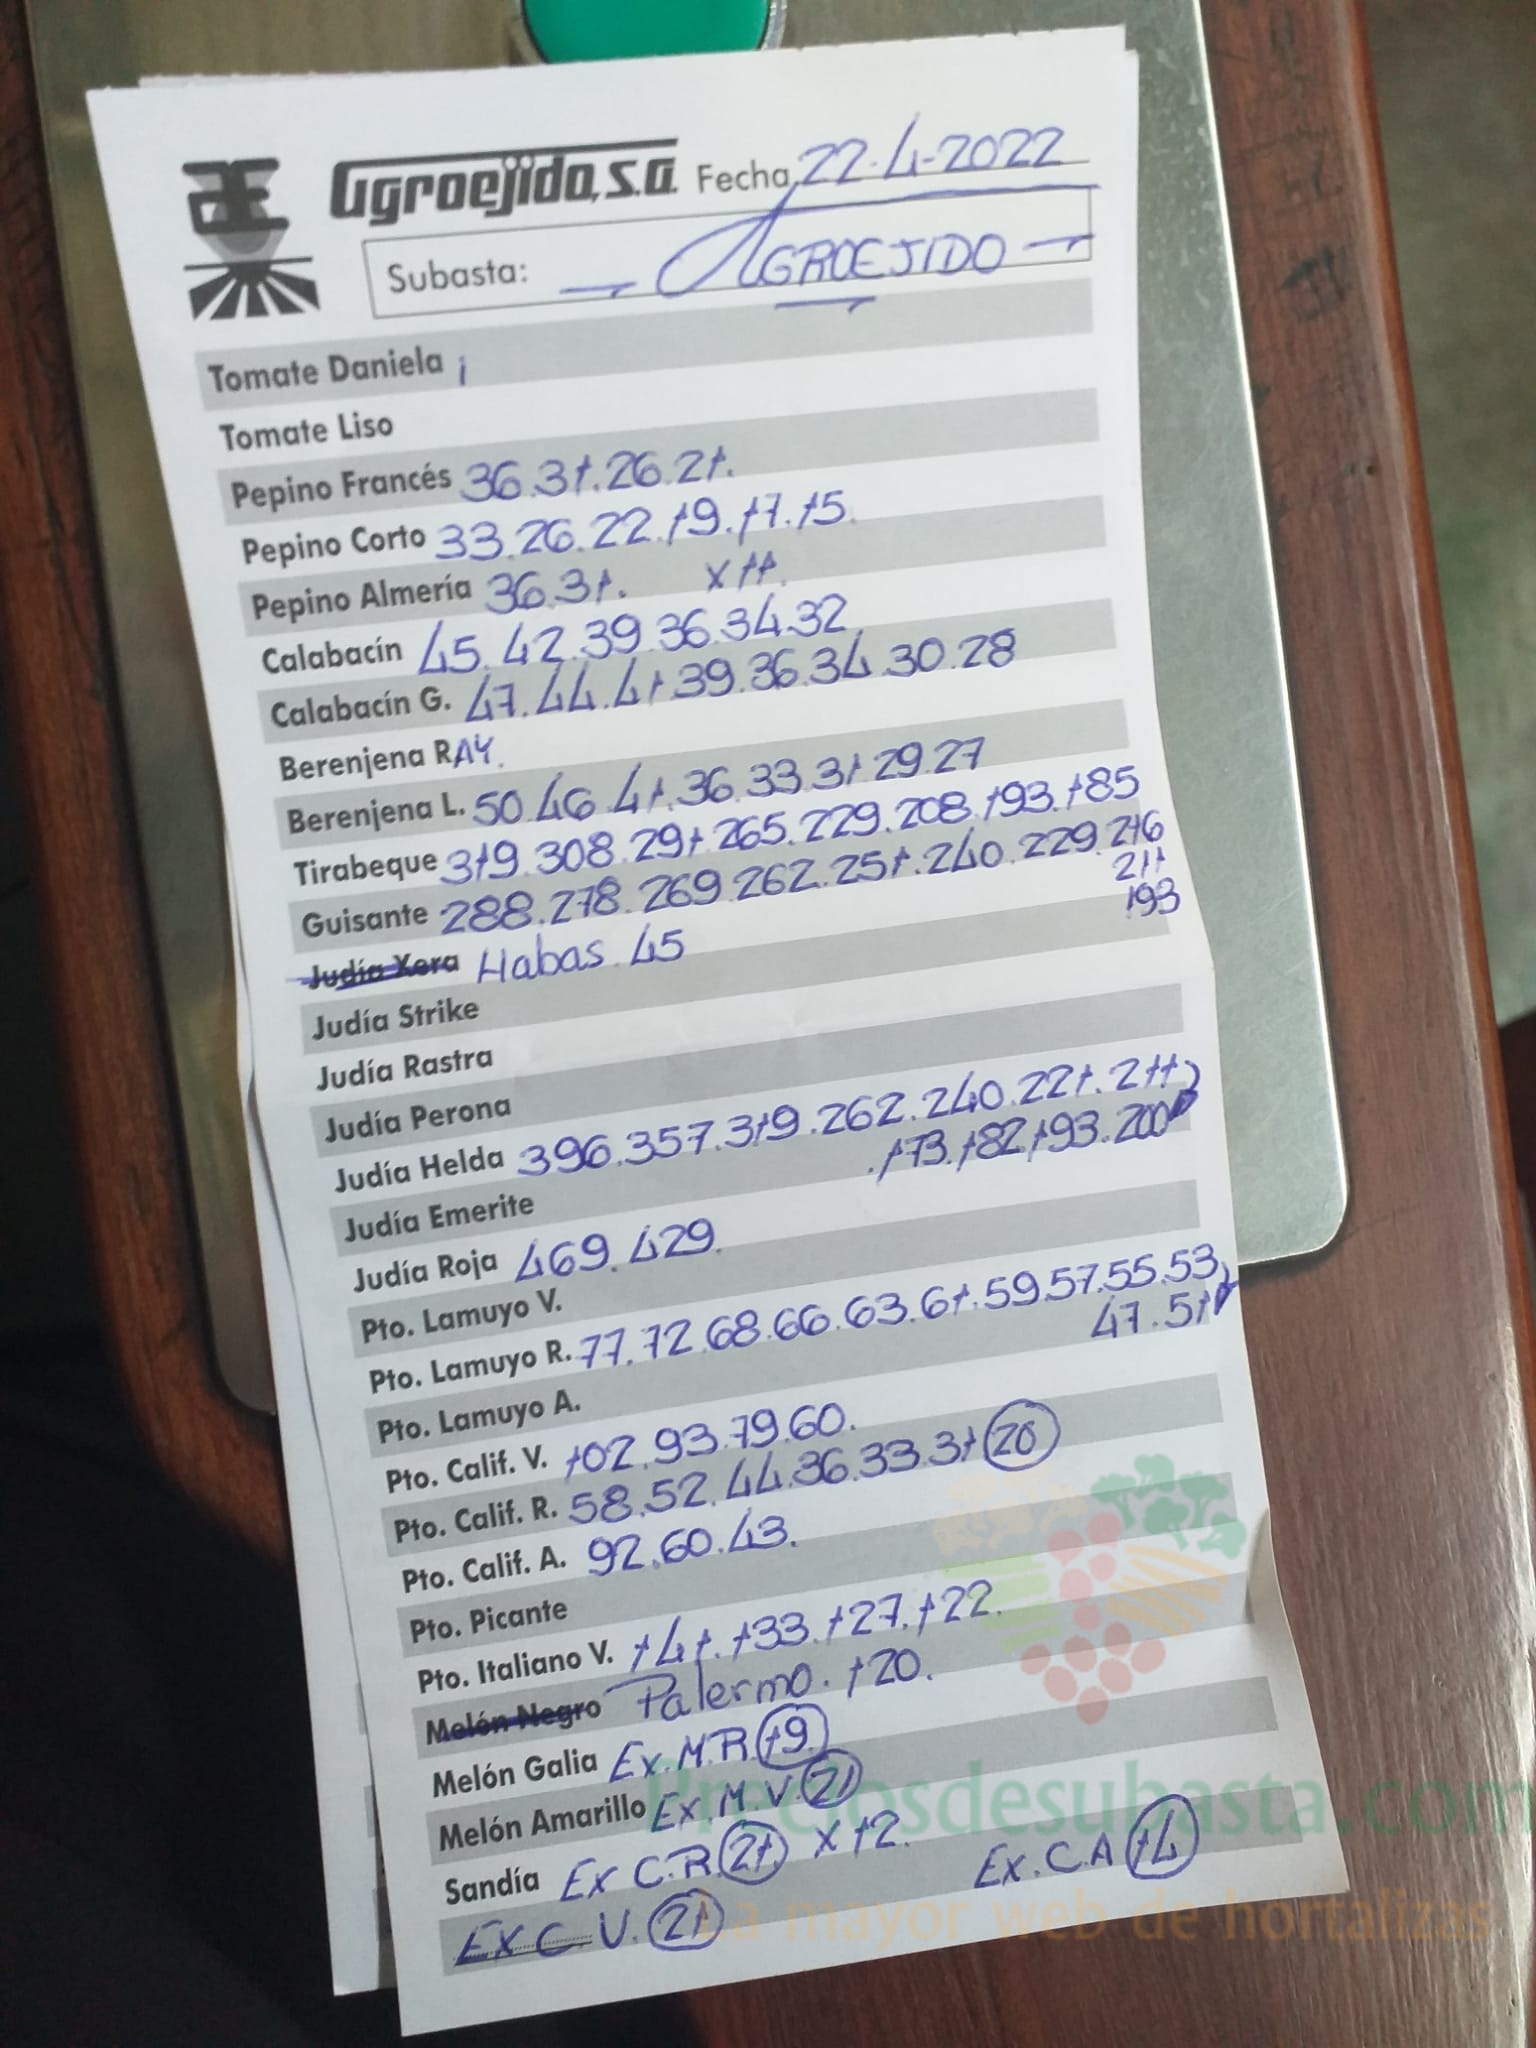 Agroejido, S.A. Fecha 22-4-2022
Subasta: AGROEJIDO
Tomate Daniela
Tomate Liso
Pepino Francés 36.31.26.21.
Pepino Corto 33.26.22.19.17.15.
Pepino Almería 36.31. x11.
Calabacín 45.42.39.36.34.32
Calabacín G. 47.44.41.39.36.34.30.28
Berenjena RAY.
Berenjena L. 50.46.41.36.33.31.29.27
Tirabeque 319.308.291.265.229.208.193.185
Guisante 288.278.269.262.251.240.229.216
211
193
Judía Xera Habas.45
Judía Strike
Judía Rastra
Judía Perona
Judía Helda 396.357.319.262.240.221.211
.173.182.193.200
Judía Emerite
Judía Roja 469.429.
Pto. Lamuyo V.
Pto. Lamuyo R. 77.72.68.66.63.61.59.57.55.53
47.51
Pto. Lamuyo A.
Pto. Calif. V. 102.93.79.60.
Pto. Calif. R. 58.52.44.36.33.31 20
Pto. Calif. A. 92.60.43.
Pto. Picante
Pto. Italiano V. 141.133.127.122.
Melón Negro Palermo.120.
Melón Galia Ex.M.R. 19.
Melón Amarillo Ex.M.V. 21
Sandía Ex C.R. 21. x12. Ex.C.A 14
Ex C.V. 21
Preciosdesubasta.com
La mayor web de hortalizas